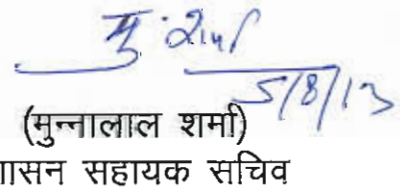 मु. शर्मा
5/8/13
(मुन्नालाल शर्मा)
शासन सहायक सचिव